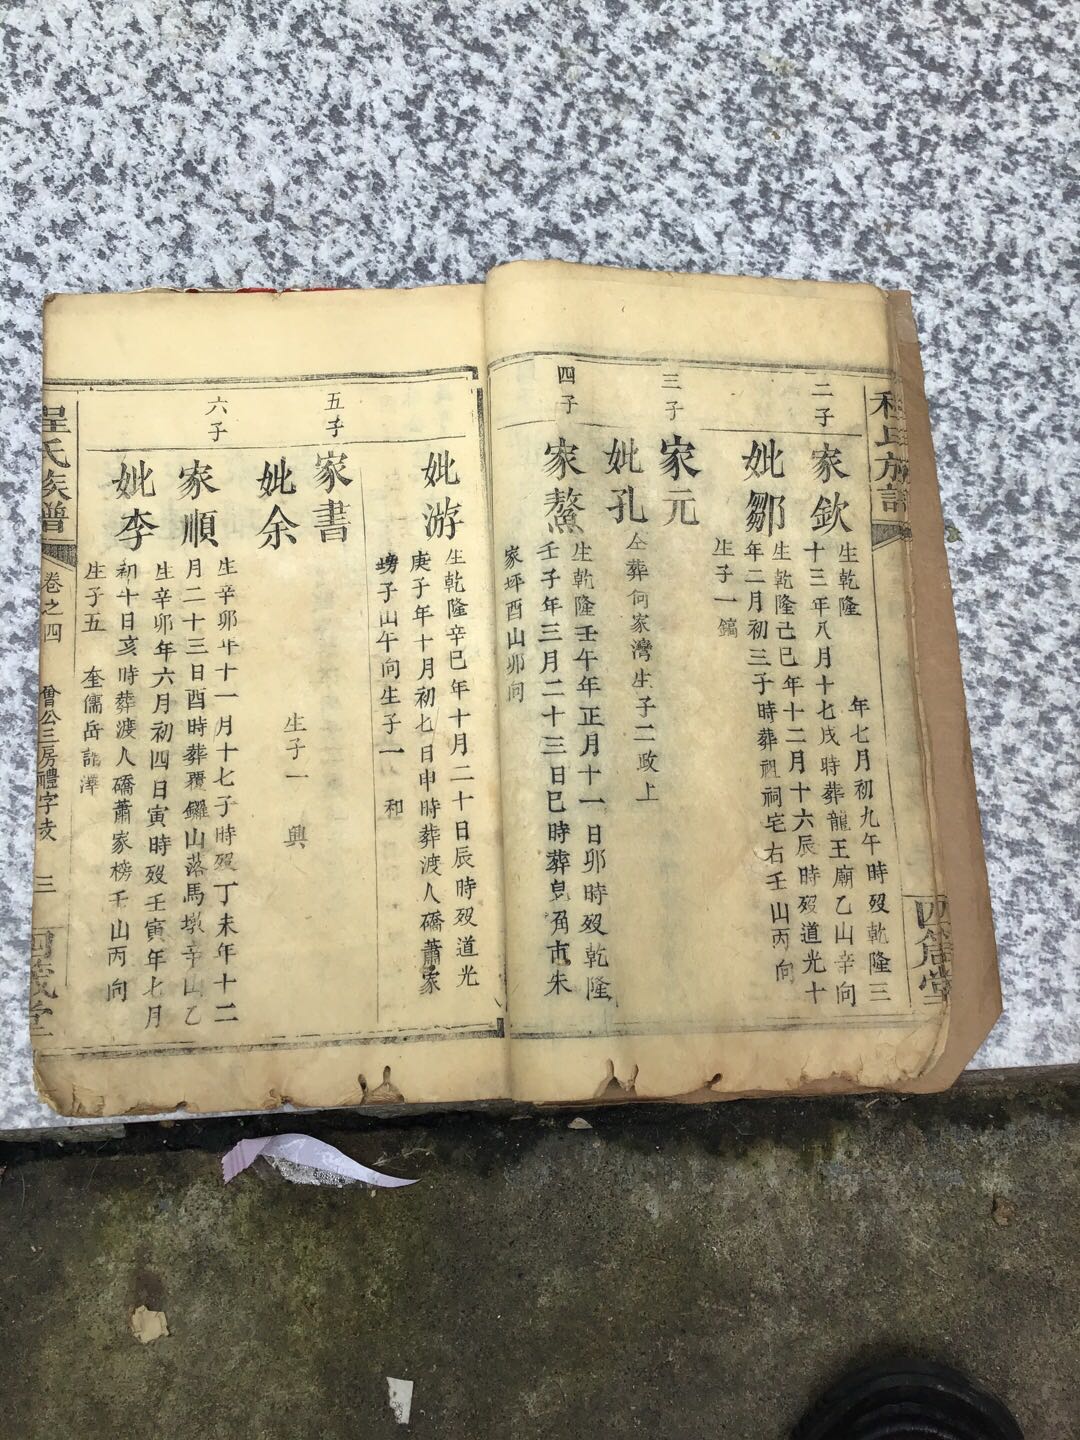 程氏族譜
二子
家欽
生乾隆
年七月初九午時歿乾隆三
十三年八月十七戌時葬龍王廟乙山辛向
妣鄒
生乾隆己巳年十二月十六辰時歿道光十
年二月初三子時葬祖祠宅右壬山丙向
生子一鎬
三子
家元
妣孔
仝葬何家灣生子二政上
四子
家鰲
生乾隆壬午年正月十一日卯時歿乾隆
壬子年三月二十三日巳時葬皂角市朱
家坪酉山卯向
妣游
生乾隆辛巳年十月二十日辰時歿道光
庚子年十月初七日申時葬渡人礄蕭家
塝子山午向生子一和
五子
家書
妣余
生子一興
六子
家順
生辛卯年十一月十七子時歿丁未年十二
月二十三日酉時葬覆鑼山落馬墩辛山乙
妣李
生辛卯年六月初四日寅時歿壬寅年七月
初十日亥時葬渡人礄蕭家榜壬山丙向
生子五 奎儒岳
程氏族譜
卷之四
僧公三房禮字支
三